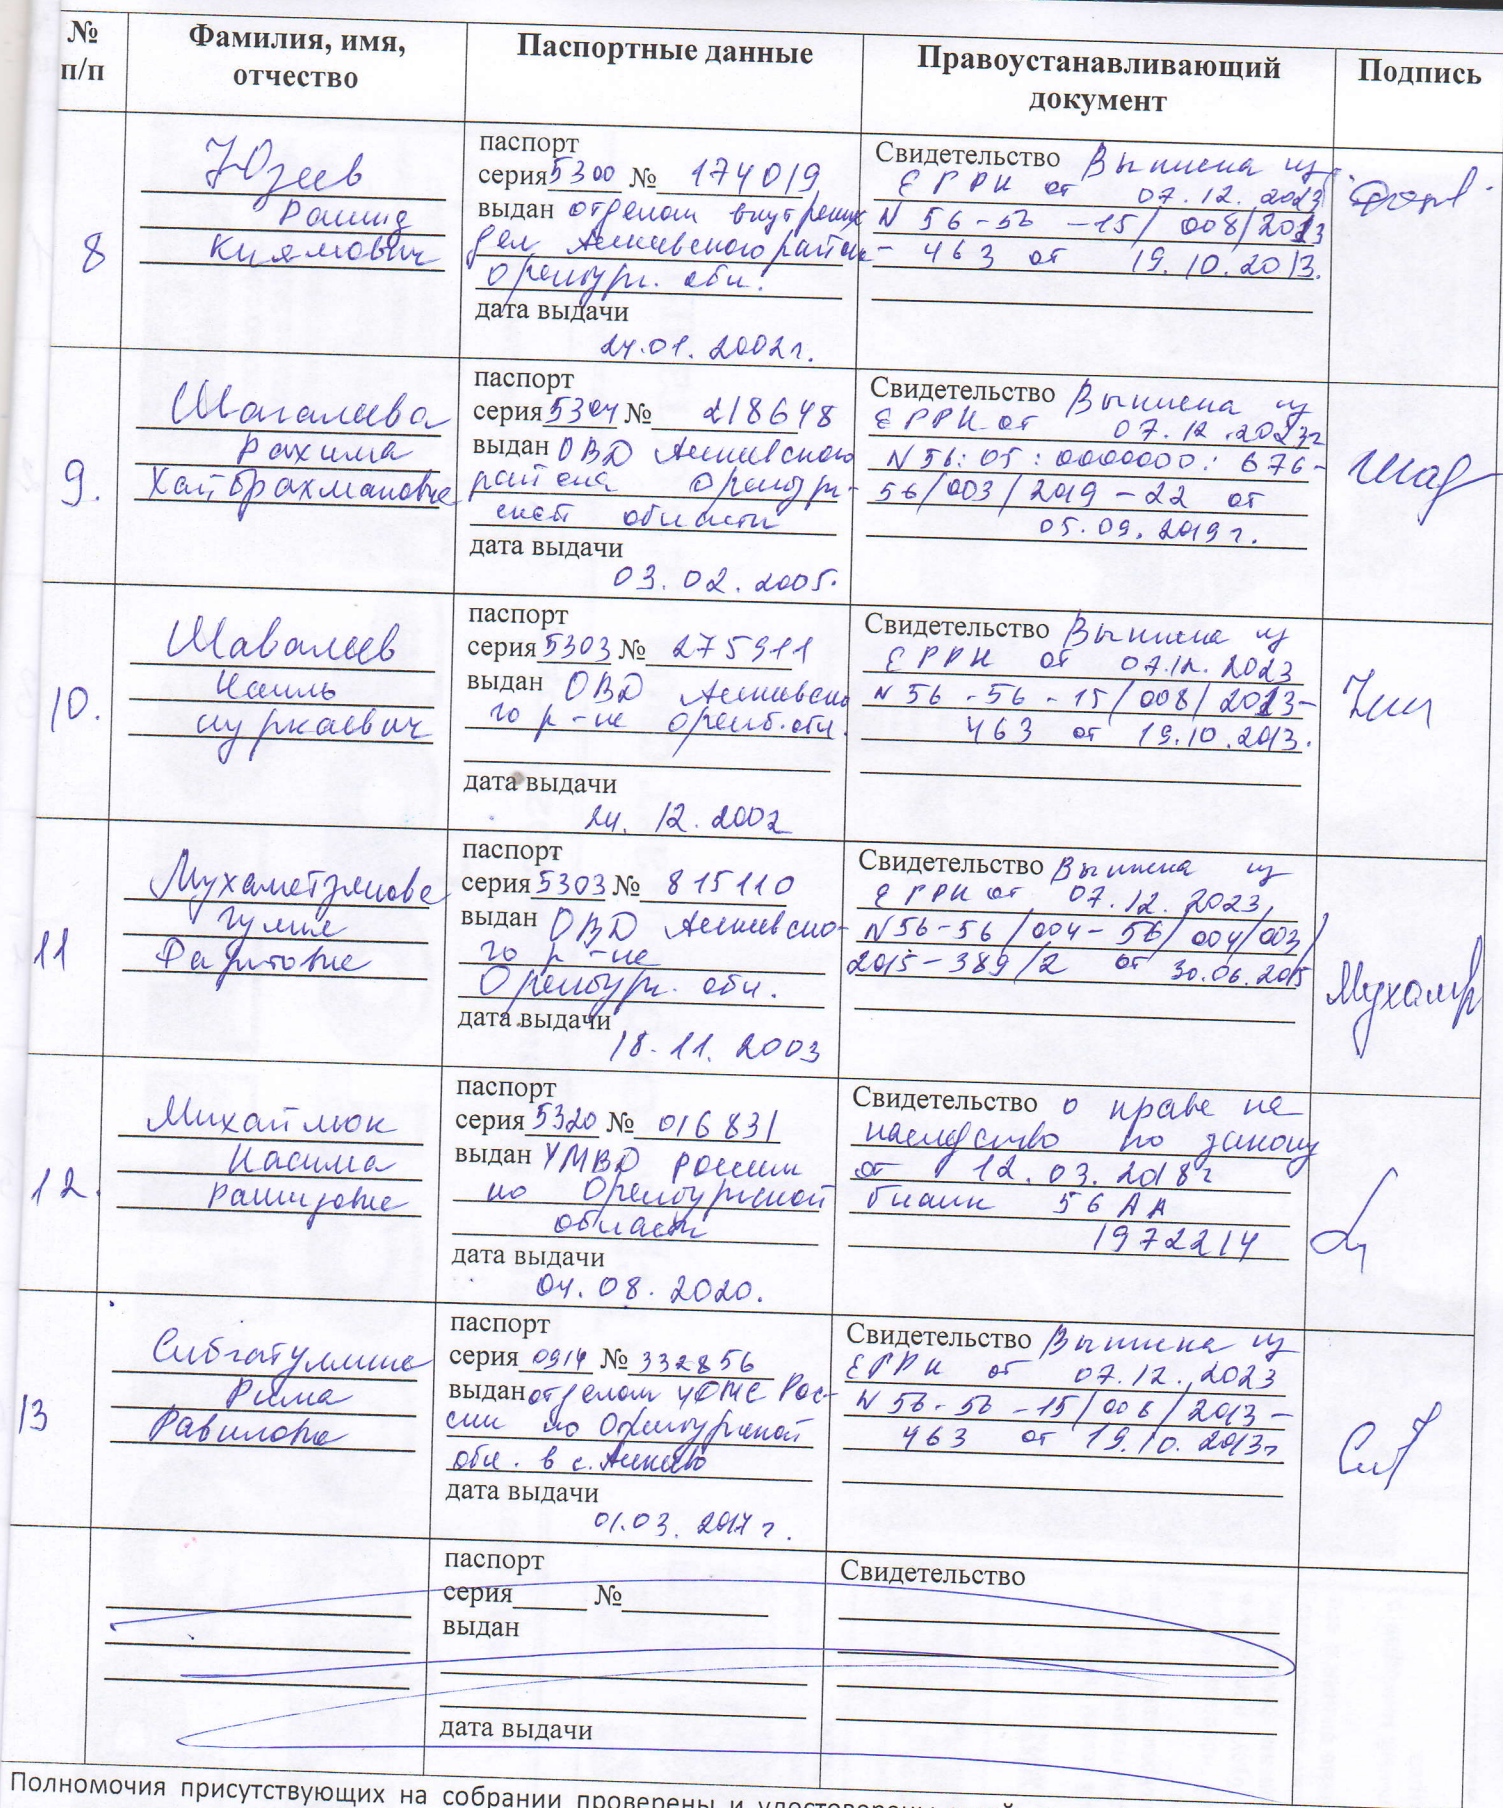 № п/п
Фамилия, имя, отчество
Паспортные данные
Правоустанавливающий документ
Подпись
8
Юзеев
Рашид
Киямович
паспорт
серия 5300 № 174019
выдан отделом внутренних
дел Асекеевского района
Оренбург. обл.
дата выдачи
24.01.2002г.
Свидетельство Выписка из
ЕГРН от 07.12.2023
N 56-56-15/008/2013
-463 от 19.10.2013.
9.
Шагалиева
Рахима
Хайбрахмановна
паспорт
серия 5304 № 218648
выдан ОВД Асекеевского
района Оренбург-
ской области
дата выдачи
03.02.2005.
Свидетельство Выписка из
ЕГРН от 07.12.2023г
N56:05:0000000:676-
56/003/2019-22 от
05.09.2019г.
Шаг
10.
Шавалеев
Наиль
Нуркаевич
паспорт
серия 5303 № 275911
выдан ОВД Асекеевско
го р-на Оренб. обл.
дата выдачи
24.12.2002
Свидетельство Выписка из
ЕГРН от 07.12.2023
N 56-56-15/008/2013-
463 от 19.10.2013.
11
Мухаметзянова
Гулия
Фаритовна
паспорт
серия 5303 № 815110
выдан ОВД Асекеевско-
го р-на
Оренбург. обл.
дата выдачи
18.11.2003
Свидетельство Выписка из
ЕГРН от 07.12.2023,
N56-56/004-56/004/003/
2015-389/2 от 30.06.2015
12.
Михайлюк
Насима
Рашидовна
паспорт
серия 5320 № 016831
выдан УМВД России
по Оренбургской
области
дата выдачи
04.08.2020.
Свидетельство о праве на
наследство по закону
от 12.03.2018г
бланк 56АА
1972214
13
Сибгатуллина
Рима
Равиловна
паспорт
серия 0914 № 332856
выдан отделом УФМС Рос-
сии по Оренбургской
обл. в с. Асекеево
дата выдачи
01.03.2017г.
Свидетельство Выписка из
ЕГРН от 07.12.2023
N 56-56-15/008/2013-
463 от 19.10.2013г
паспорт
серия № 
выдан
дата выдачи
Свидетельство
Полномочия присутствующих на собрании проверены и удостоверены